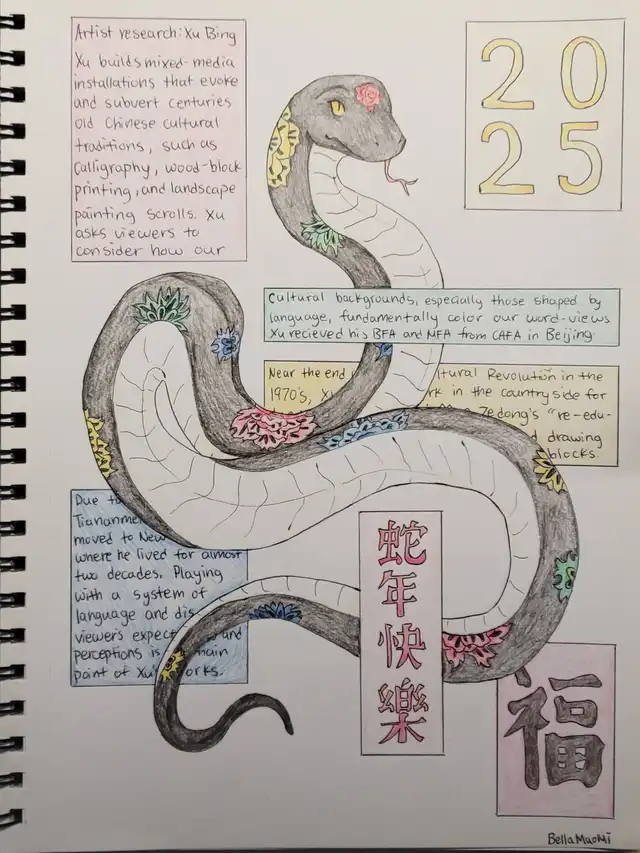 Artist research: Xu Bing
Xu builds mixed-media
installations that evoke
and subvert centuries
old Chinese cultural
traditions, such as
calligraphy, wood-block
printing, and landscape
painting scrolls. Xu
asks viewers to
consider how our
20
25
Cultural backgrounds, especially those shaped by
language, fundamentally color our word-views
Xu recieved his BFA and MFA from CAFA in Beijing
Near the end ltural Revolution in the
1970's, X rk in the country side for
Zedong's "re-edu-
drawing
blocks.
Due to
Tiananme
moved to New
where he lived for almost
two decades. Playing
with a system of
language and dis
viewer's expect and
perceptions is main
point of Xu' orks.
蛇年快樂
福
BellaMaoMi